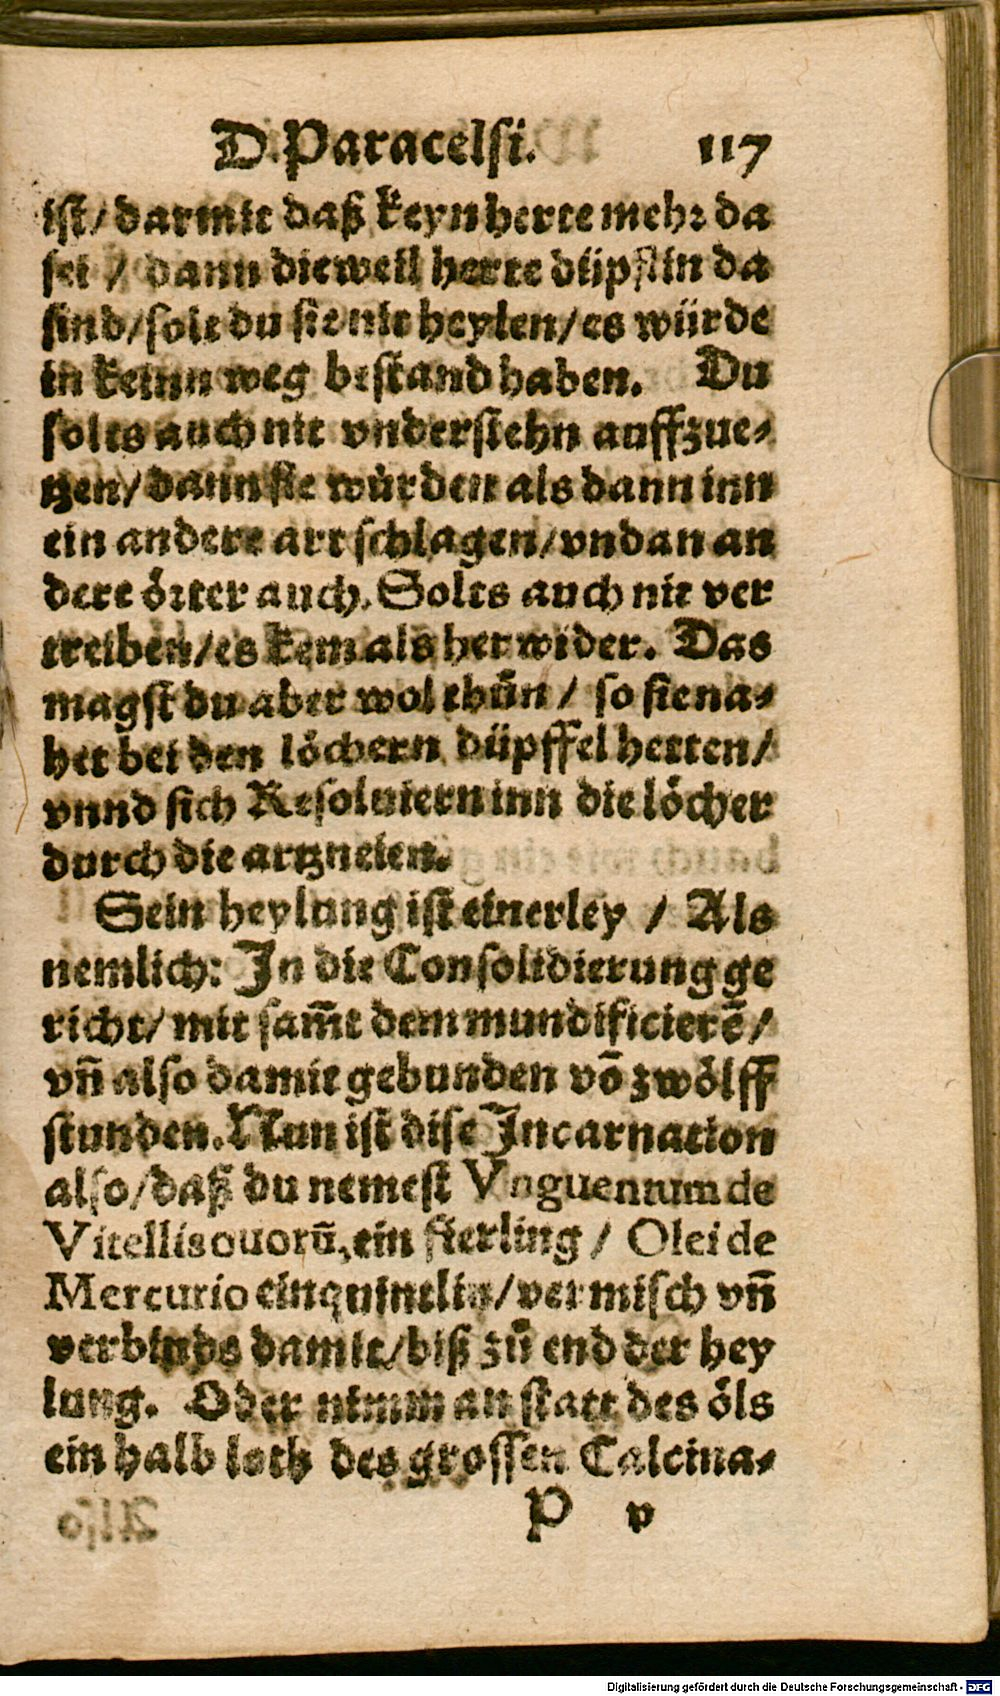 D. Paracelsi. 117
ist/ darmit daß keyn herte mehr da
sei / dann dieweil herte düpflin da
sind/ solt du sie nit heylen/ es würde
in keinn weg bestand haben. Du
solts auch nit vnderstehn auffzue⸗
tzen/ dann sie würden als dann inn
ein andere art schlagen/ vnd an an
dere örter auch. Solts auch nit ver
treiben/ es kem als her wider. Das
magst du aber wol thůn / so sie na⸗
het bei den löchern düpffel hetten/
vnnd sich Resoluiern inn die löcher
durch die artzneien.
Sein heylung ist einerley / Als
nemlich: In die Consolidierung ge
richt/ mit sam̃t dem mundificierẽ /
vñ also damit gebunden võ zwölff
stunden. Nun ist dise Incarnation
also/ daß du nemest Vnguentum de
Vitellis ouorũ, ein fierling / Olei de
Mercurio ein quintlin/ vermisch vñ
verbinds damit/ biß zů end der hey
lung. Oder nimm an statt des öls
ein halb loth des grossen Calcina⸗
P v